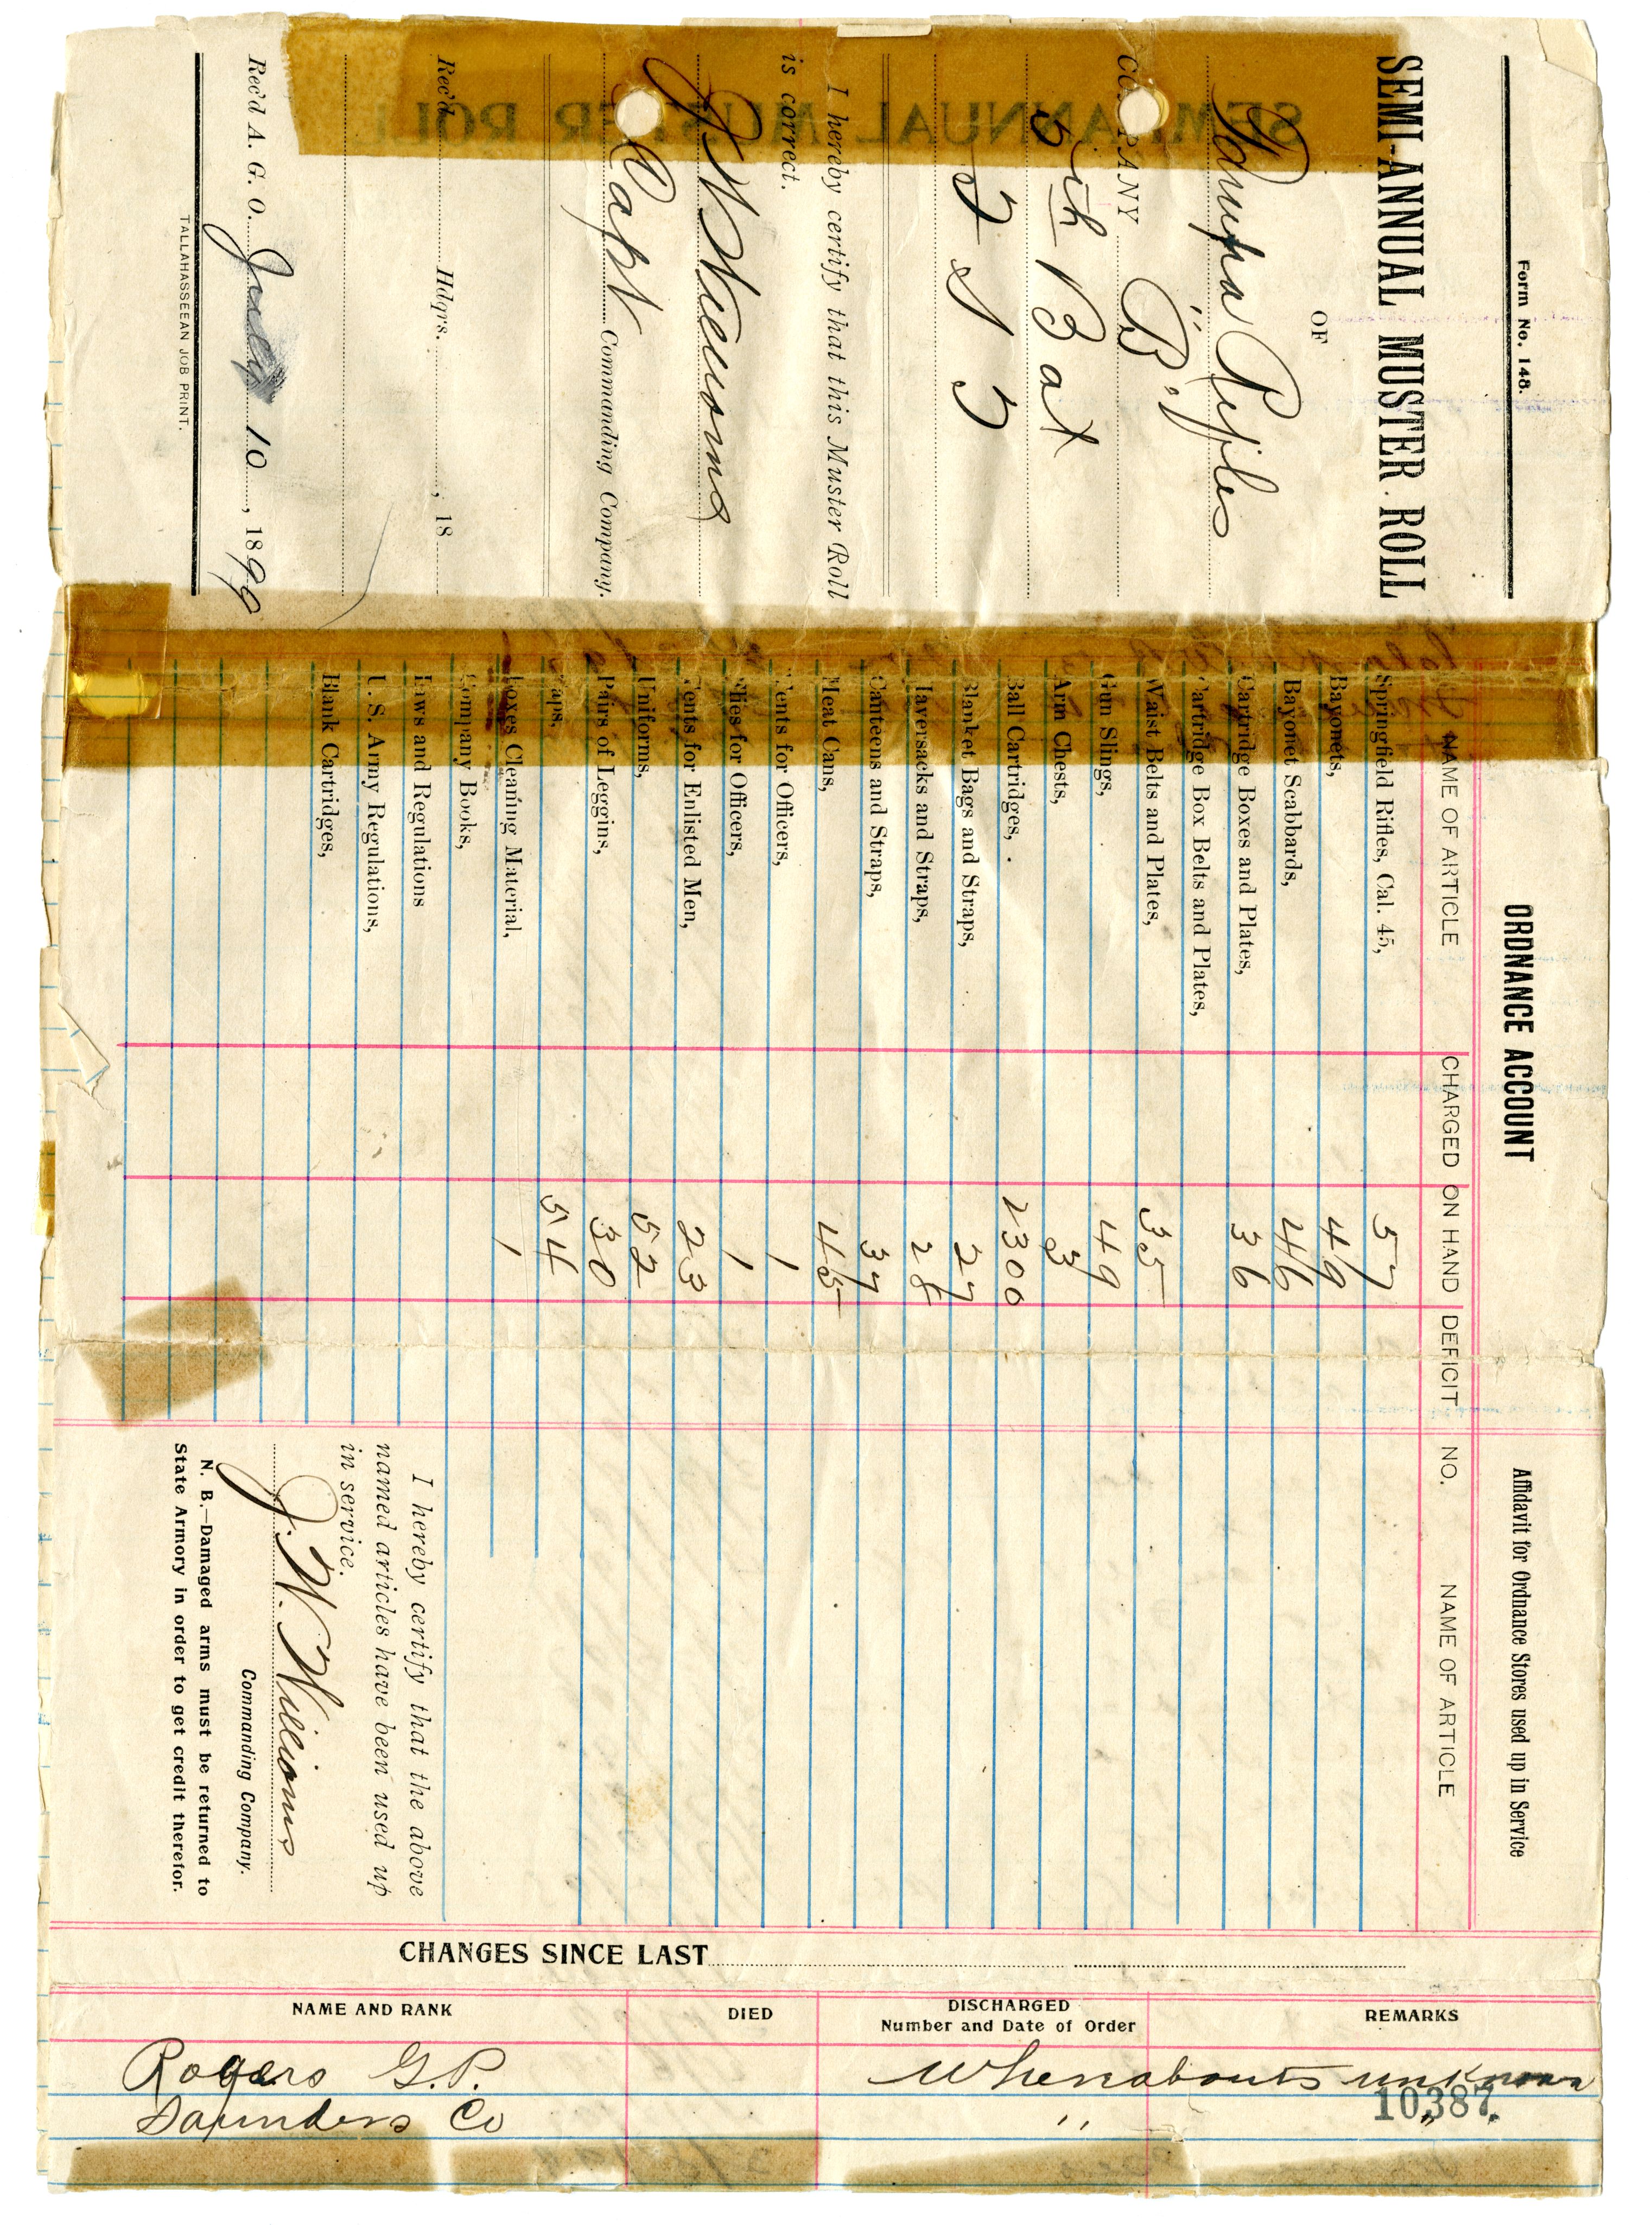 Form No. 148.
SEMI-ANNUAL MUSTER ROLL
OF
Tampa Rifles
COMPANY "B"
5th Bat
I hereby certify that this Muster Roll
is correct.
J W Williams
Capt Commanding Company.
Rec'd Hdqr's. , 18
Rec'd A. G. O. July 10 , 1899
TALLAHASSEEAN JOB PRINT.
SEMI-ANNUAL MUSTER ROLL
ORDNANCE ACCOUNT
NAME OF ARTICLE CHARGED ON HAND DEFICIT
Springfield Rifles, Cal. 45, 57
Bayonets, 49
Bayonet Scabbards, 46
Cartridge Boxes and Plates, 36
Cartridge Box Belts and Plates,
Waist Belts and Plates, 35
Gun Slings, 49
Arm Chests, 3
Ball Cartridges, 2300
Blanket Bags and Straps, 27
Haversacks and Straps, 28
Canteens and Straps, 37
Meat Cans, 45
Tents for Officers, 1
Flies for Officers, 1
Tents for Enlisted Men, 23
Uniforms, 52
Pairs of Leggins, 30
Caps, 54
Boxes Cleaning Material, 1
Company Books,
Laws and Regulations
U. S. Army Regulations,
Blank Cartridges,
Affidavit for Ordnance Stores used up in Service
NO. NAME OF ARTICLE
I hereby certify that the above
named articles have been used up
in service.
J. W. Williams
Commanding Company.
N. B.—Damaged arms must be returned to
State Armory in order to get credit therefor.
CHANGES SINCE LAST
NAME AND RANK DIED DISCHARGED Number and Date of Order REMARKS
Rogers G.P. Whereabouts unknown
Saunders Co " "
10387.